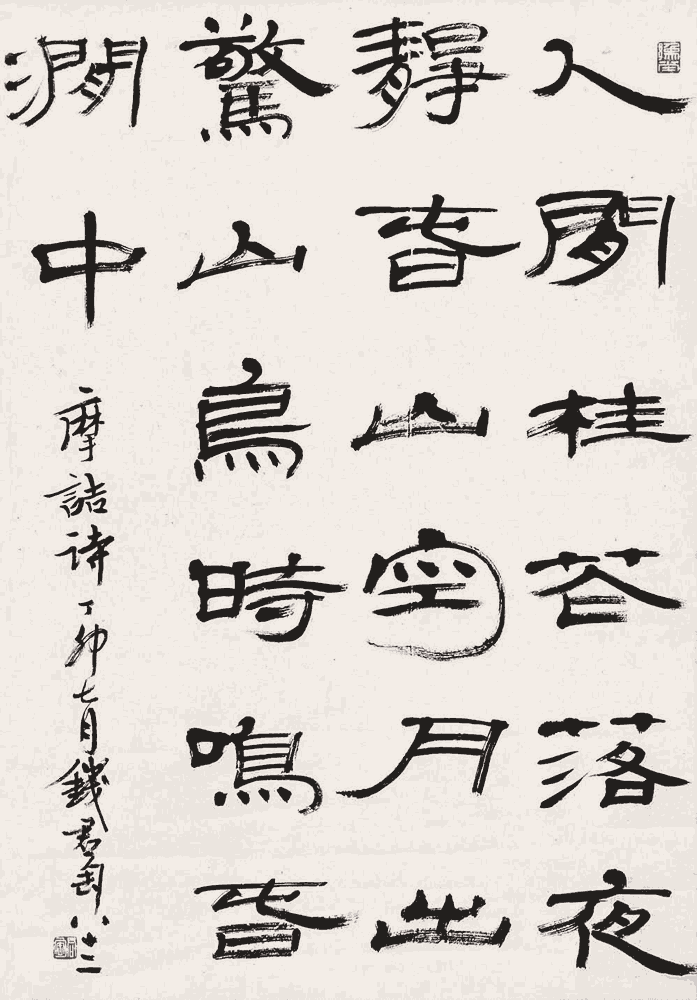 人閒桂花落夜
靜春山空月出
驚山鳥時鳴春
㵎中
摩詰诗丁卯七月錢君匋八十二